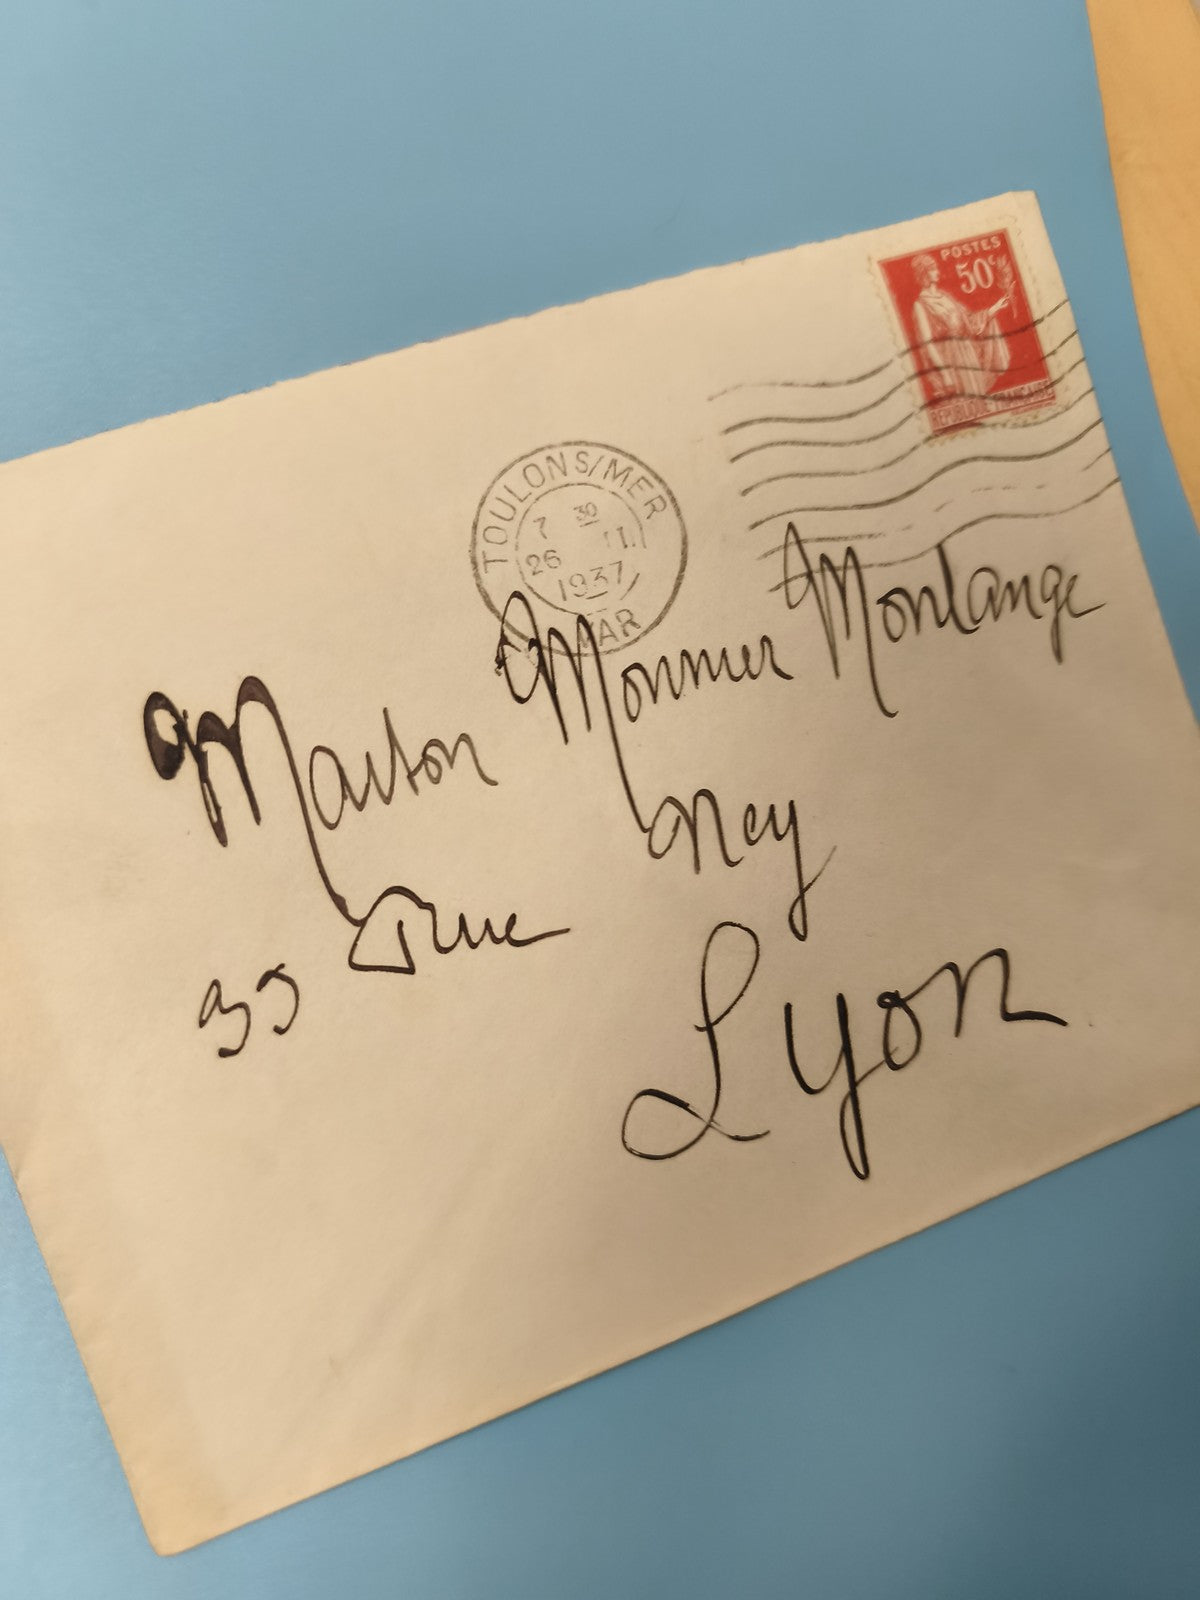 POSTES
50c
REPUBLIQUE FRANÇAISE
TOULON S/MER
7 30
26
1937
VAR
Monnier Montange
33 rue Ney
Lyon